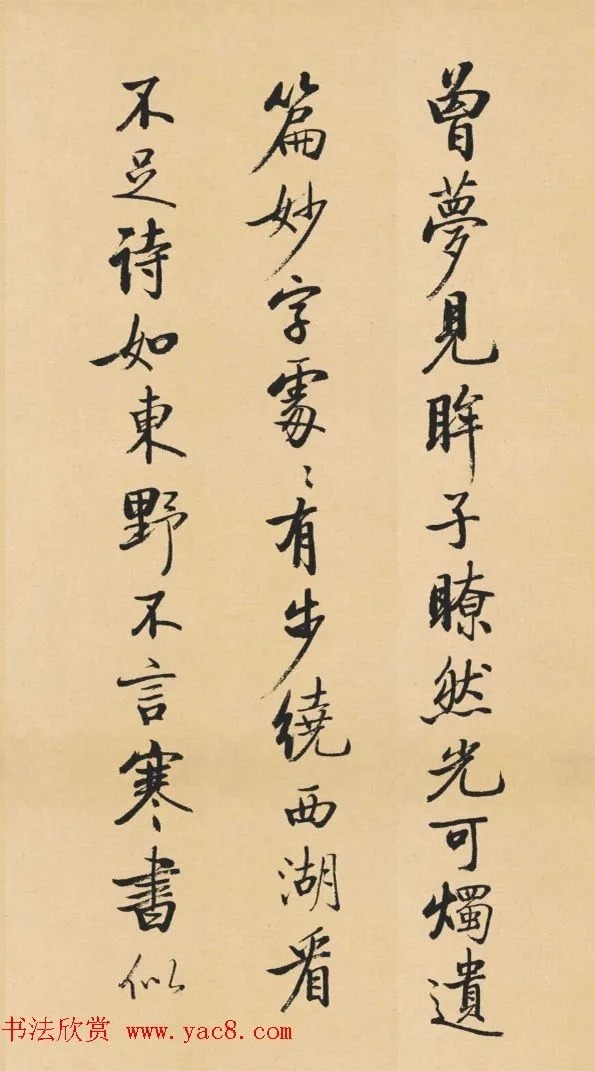 曾夢見眸子瞭然光可燭遺
篇妙字處〻有步繞西湖看
不足詩如東野不言寒書似
书法欣赏 www.yac8.com